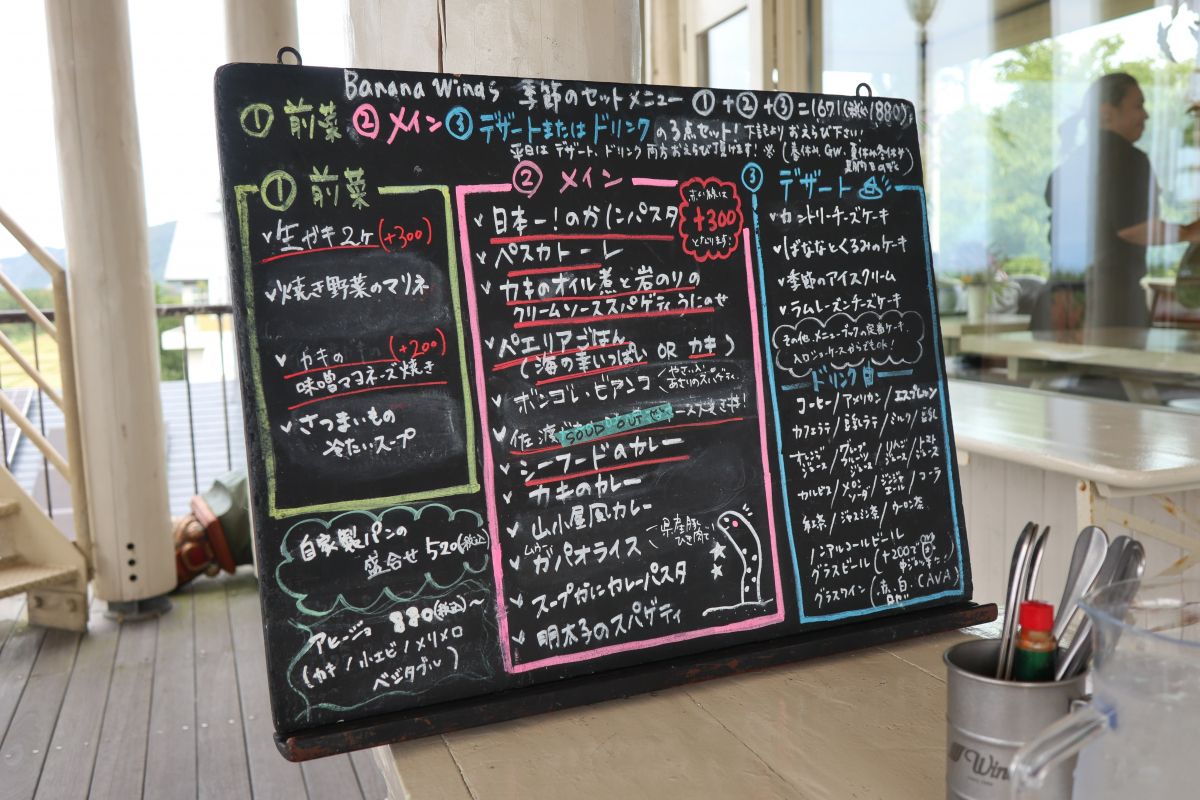 Banana Winds 季節のセットメニュー ①+②+③=1671(税込1880)
①前菜 ②メイン ③デザートまたはドリンクの3点セット!下記よりおえらび下さい!
平日はデザート、ドリンク両方おえらび頂けます!※(春休み、GW、夏休み冬休み
期間をのぞく)
① 前菜
生ガキ2ヶ(+300)
焼き野菜のマリネ
カキの(+200)
味噌マヨネーズ焼き
さつまいもの
冷たいスープ
自家製パンの
盛合せ 520(税込)
アヒージョ 880(税込)~
(カキ/小エビ/メリメロ
ベジタブル)
② メイン
赤い線は
+300
となります!
日本一!のかにパスタ
ペスカトーレ
カキのオイル煮と岩のりの
クリームソーススパゲティうにのせ
ペエリアごはん
(海の幸いっぱい OR カキ)
ボンゴレ・ビアンコ(やさい入り
あさりのスパゲティ)
佐渡
SOLD OUT
シーフードのカレー
カキのカレー
山小屋風カレー
ガパオライス(県産豚
ひき肉で)
スープがにカレーパスタ
明太子のスパゲティ
③ デザート
カントリーチーズケーキ
ばななとくるみのケーキ
季節のアイスクリーム
ラムレーズンチーズケーキ
その他、メニューブックの定番ケーキ、
入口ショーケースからでもOK!
ドリンク
コーヒー/アメリカン/エスプレッソ
カフェラテ/豆乳ラテ/ミルク/豆乳
オレンジジュース/グレープフルーツジュース/リンゴジュース/トマトジュース
カルピス/メロンソーダ/ジンジャエール/コーラ
紅茶/ジャスミン茶/ウーロン茶
ノンアルコールビール
グラスビール(+200で
グラスワイン(赤、白、CAVA)
Wind